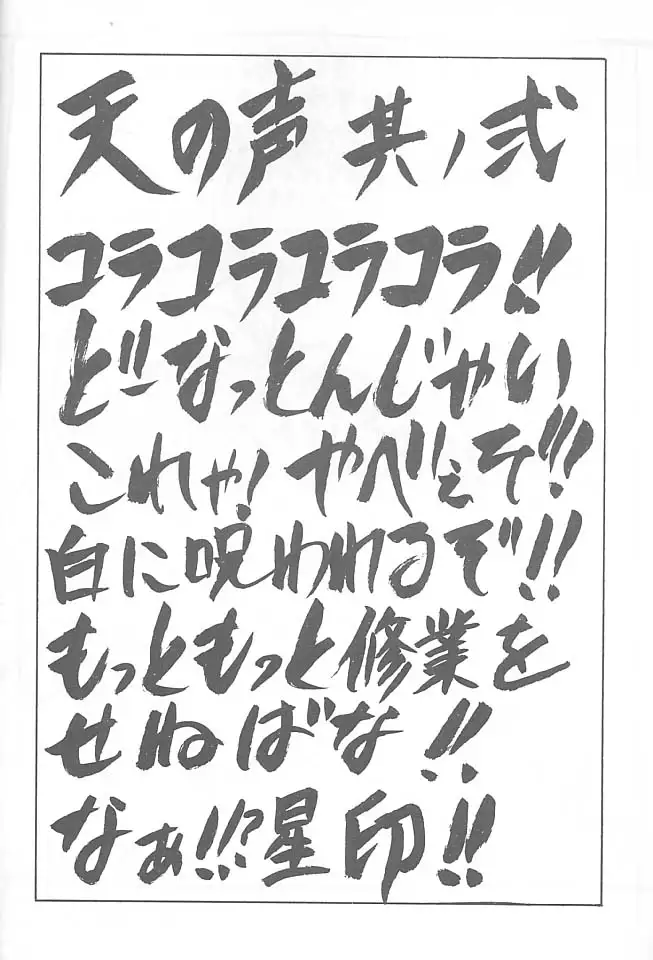 天の声 其ノ弐
コラコラコラコラ!!
ど!!なっとんじゃい
これゃ! やべ!!ぇぞ!!!
白に呪われるぞ!!
もっともっと修業を
せねばな!!
なぁ!!?星印!!